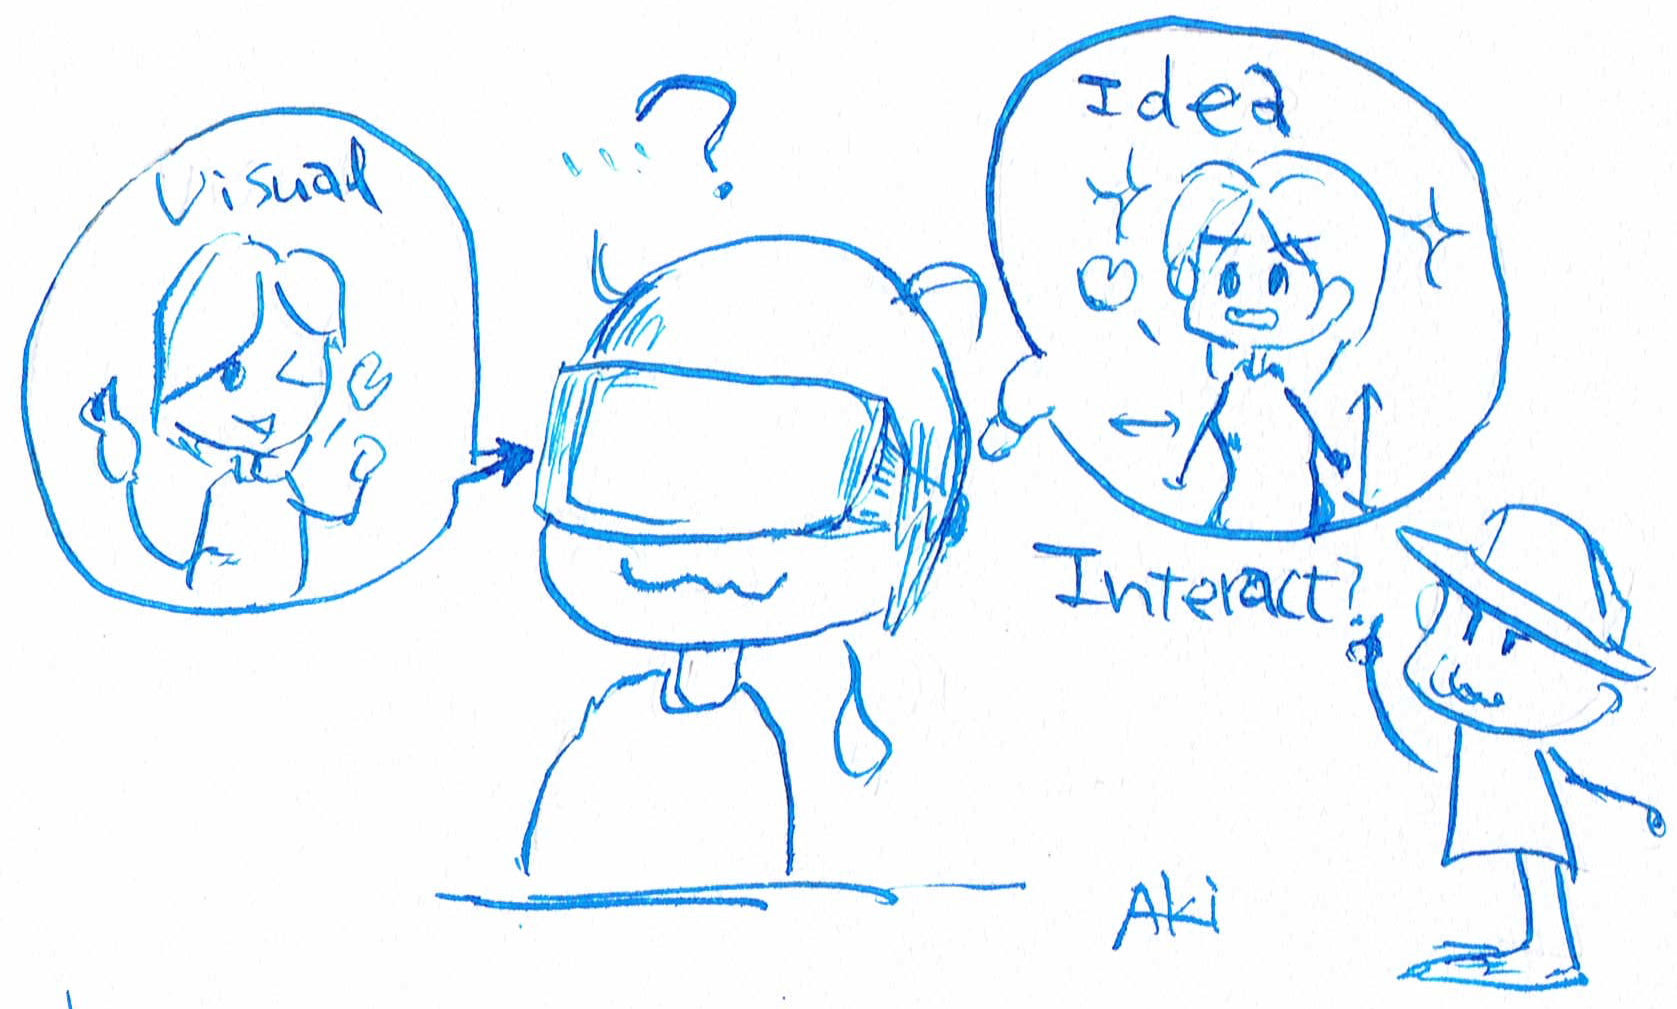 Visual
...?
Idea
Interact?
Aki